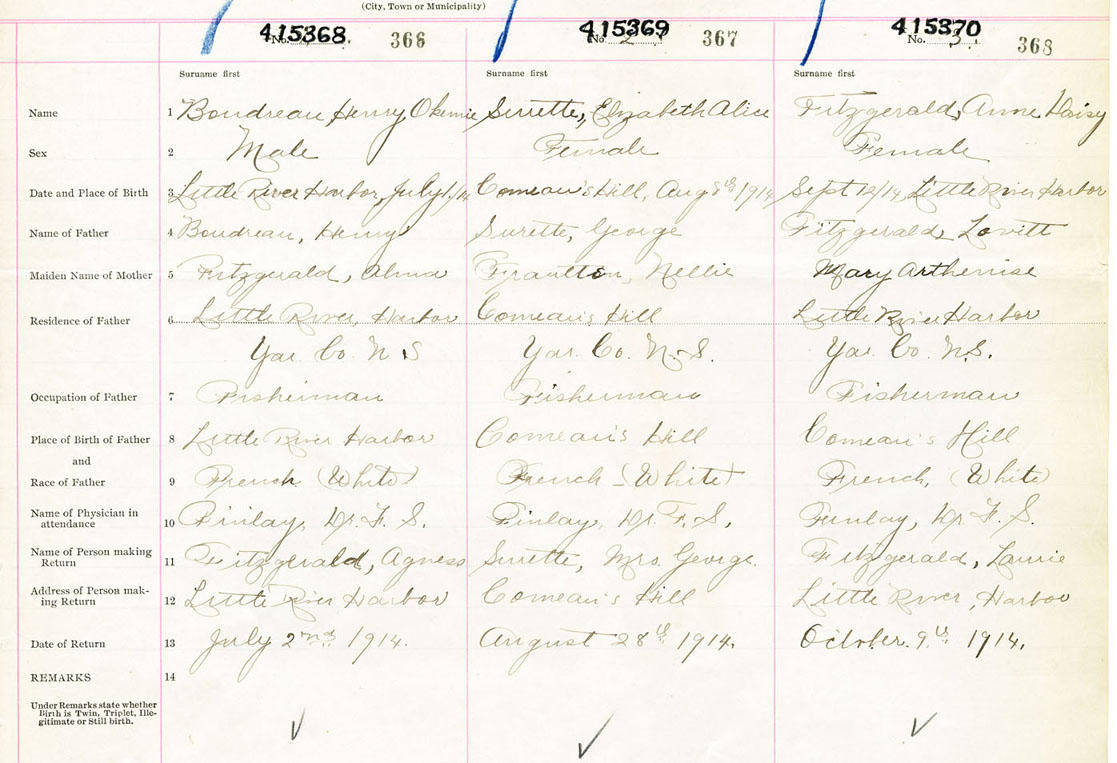 (City, Town or Municipality)
415368 415369 415370
No. 1. 366 No. 2. 367 No. 3. 368
Surname first Surname first Surname first
Name 1 Boudreau Henry Surette, Elizabeth Alice Fitzgerald, Anne Daisy
Sex 2 Male Female Female
Date and Place of Birth 3 Little River Harbor, July 1/14 Comeau's Hill, Aug 8th 1914 Sept 12/14, Little River Harbor
Name of Father 4 Boudreau, Henry Surette, George Fitzgerald, Lovitt
Maiden Name of Mother 5 Fitzgerald, Alma Nellie Mary Arthenise
Residence of Father 6 Little River, Harbor Comeau's Hill Little River Harbor
Yar. Co. N S Yar. Co. N.S. Yar. Co. N.S.
Occupation of Father 7 Fisherman Fisherman Fisherman
Place of Birth of Father 8 Little River Harbor Comeau's Hill Comeau's Hill
and
Race of Father 9 French (White) French (White) French, (White)
Name of Physician in
attendance 10 Finlay, Dr. F. S. Finlay, Dr. F. S. Finlay, Dr. F. S.
Name of Person making
Return 11 Fitzgerald, Agness Surette, Mrs. George. Fitzgerald, Laurie
Address of Person mak-
ing Return 12 Little River Harbor Comeau's Hill Little River, Harbor
Date of Return 13 July 2nd 1914. August 28th 1914. October. 9th 1914.
REMARKS 14
Under Remarks state whether
Birth is Twin, Triplet, Ille-
gitimate or Still birth.